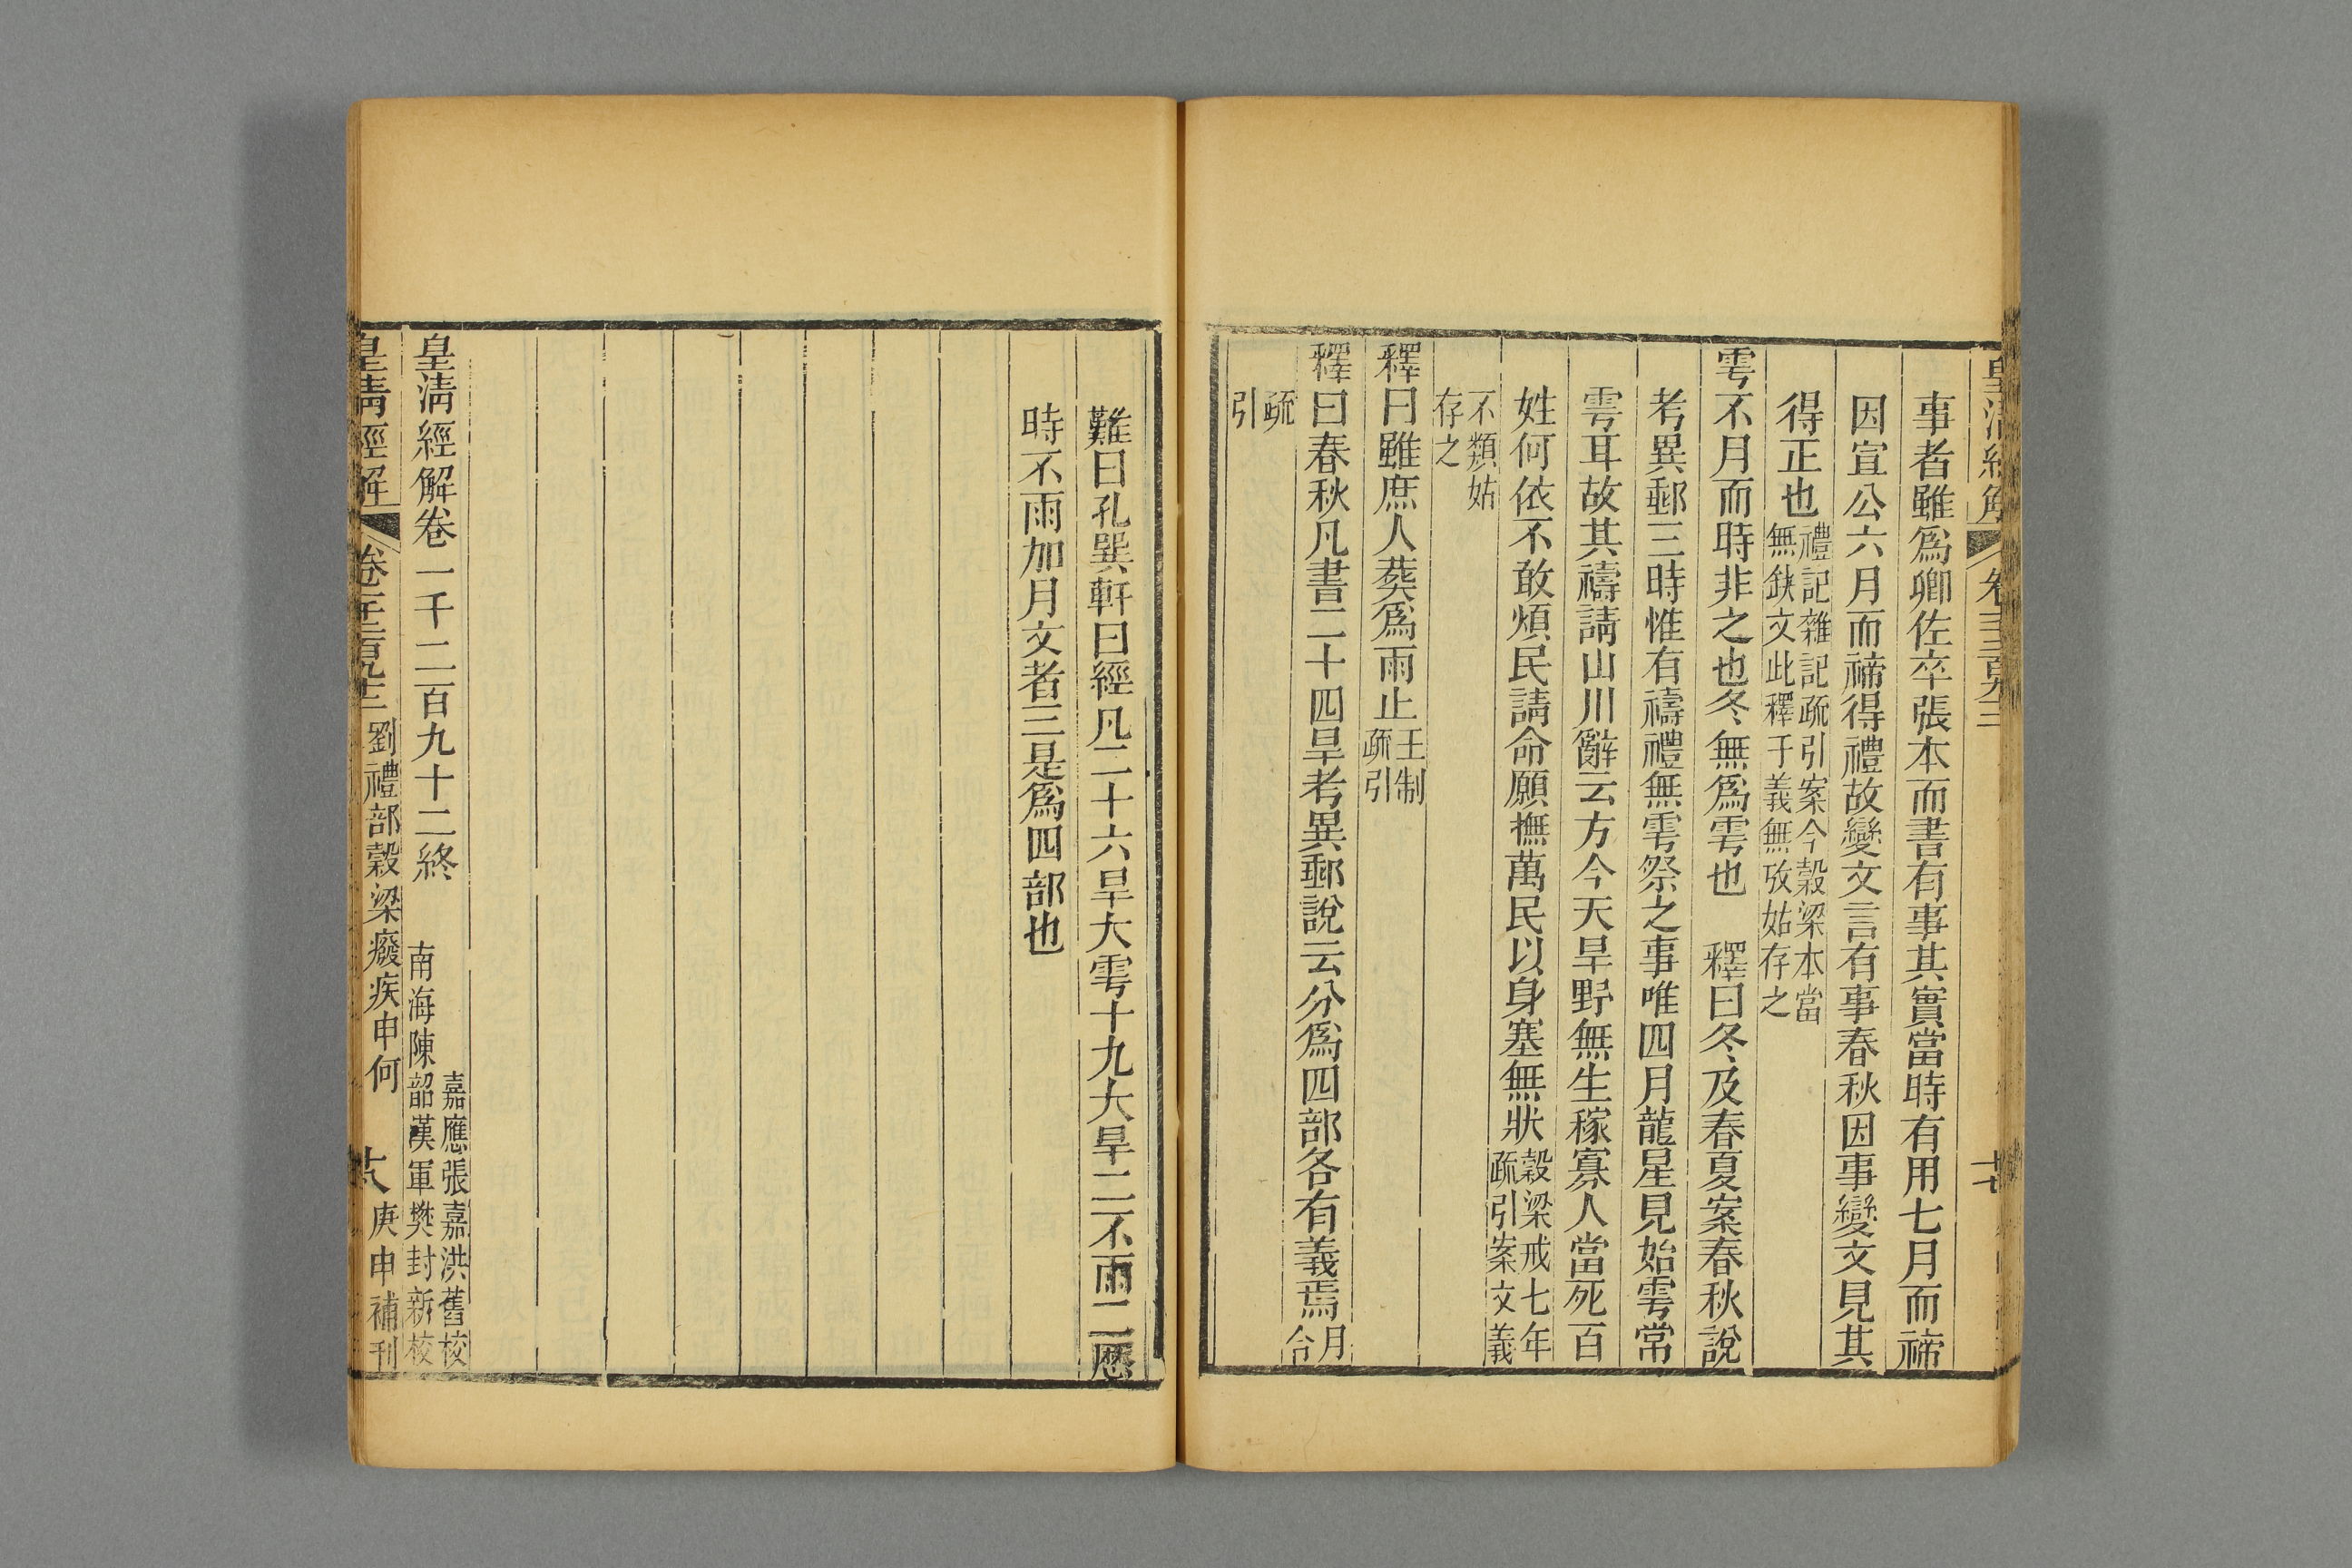 事者雖爲卿佐卒張本而書有事其實當時有用七月而禘
因宣公六月而禘得禮故變文言有事春秋因事變文見其
得正也禮記雜記疏引案今穀梁本當無鈌文此釋于義無攷姑存之
雩不月而時非之也冬無爲雩也　釋曰冬及春夏案春秋說
考異郵三時惟有禱禮無雩祭之事唯四月龍星見始雩常
雩耳故其禱請山川辭云方今天旱野無生稼寡人當死百
姓何依不敢煩民請命願撫萬民以身塞無狀穀梁戒七年疏引案文義
不類姑存之
釋曰雖庶人葬爲雨止王制疏引
釋曰春秋凡書二十四旱考異郵說云分爲四部各有義焉月令
疏引
難曰孔巽軒曰經凡二十六旱大雩十九大旱二不雨二歷
時不雨加月文者三是爲四部也
皇淸經解卷一千二百九十二終
嘉應張嘉洪舊校
南海陳韶漢軍樊封新校
皇淸經解
劉禮部穀梁癈疾申何
庚申補刊